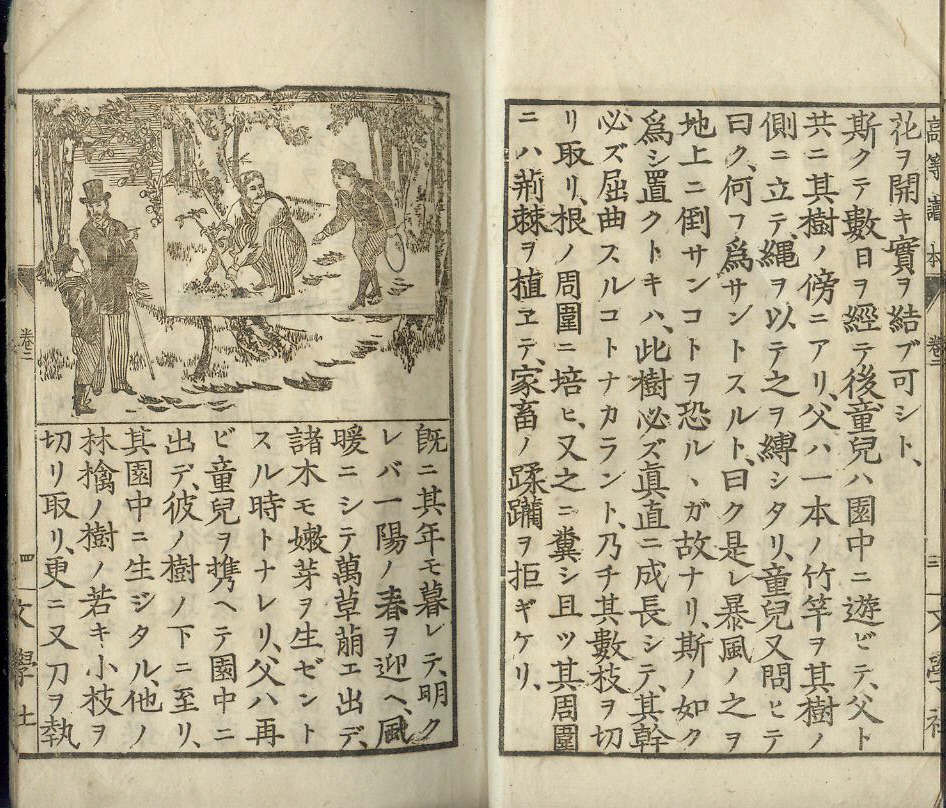 高等讀本 巻二 三 文學社
花ヲ開キ實ヲ結ブ可シト、
斯クテ數日ヲ經テ後童兒ハ園中ニ遊ビテ、父ト
共ニ其樹ノ傍ニアリ、父ハ一本ノ竹竿ヲ其樹ノ
側ニ立テ、縄ヲ以テ之ヲ縛シタリ、童兒又問ヒテ
曰ク、何フ爲サントスルト、曰ク是レ暴風ノ之ヲ
地上ニ倒サンコトヲ恐ルヽガ故ナリ、斯ノ如ク
爲シ置クトキハ、此樹必ズ眞直ニ成長シテ、其幹
必ズ屈曲スルコトナカラント、乃チ其數枝ヲ切
リ取リ、根ノ周圍ニ培ヒ、又之ニ糞シ且ツ其周圍
ニハ荊棘ヲ植ヱテ、家畜ノ蹂躪ヲ拒ギケリ、
既ニ其年モ暮レテ、明ク
レバ一陽ノ春ヲ迎ヘ、風
暖ニシテ萬草萠エ出デ、
諸木モ嫩芽ヲ生ゼント
スル時トナレリ、父ハ再
ビ童兒ヲ携ヘテ園中ニ
出デ、彼ノ樹ノ下ニ至リ、
其園中ニ生ジタル、他ノ
林檎ノ樹ノ若キ小枝ヲ
切リ取リ、更ニ又刀ヲ執
巻二 四 文學社